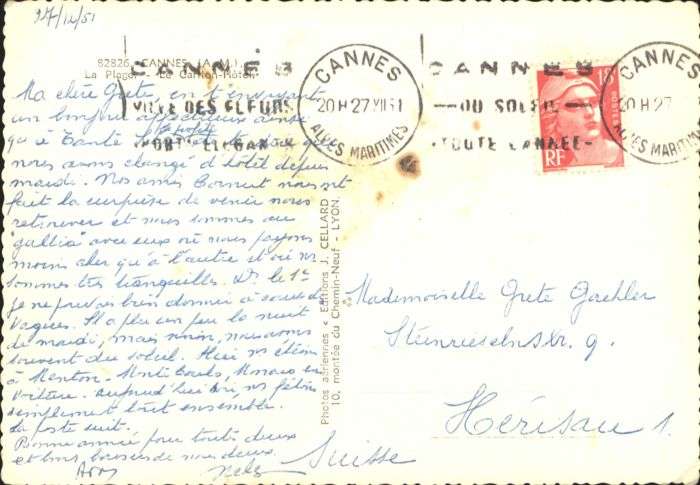 82826. CANNES (A.-M.)
La Plage - Le Carlton-Hôtel
CANNES
VILLE DES FLEURS
SPORTS ELEGANTS
CANNES
20H 27 XII 51
ALPES MARITIMES
CANNES
DU SOLEIL
TOUTE L'ANNEE
CANNES
20H 27
RF
POSTES
Ma chère Grete, en t'envoyant
un bonjour affectueux ainsi
qu'à Tante je profite te dire que
nous avons changé d'hôtel depuis
mardi. Nos amis Cornut nous ont
fait la surprise de venir nous
retrouver et nous sommes au
"gallia" avec eux où nous payons
moins cher qu'à l'autre et où ns
sommes très tranquilles. Ds le 1er
je ne pouvais bien dormir à cause des
Vagues. Il a plu un peu la nuit
de mardi, mais sinon, nous avons
souvent du soleil. Hier ns étions
à Menton - Monte Carlo, Monaco en
voiture. aujourd'hui ns fêtons
simplement tout ensemble.
La poste suit.
Bonne année pour toutes deux
et bons baisers de nous deux.
Nelly
Photos aériennes « Editions J. CELLARD »
10, montée du Chemin-Neuf - LYON.
Mademoiselle Grete Gaehler
Steinrieselnstr. 9.
Hérisau 1.
Suisse